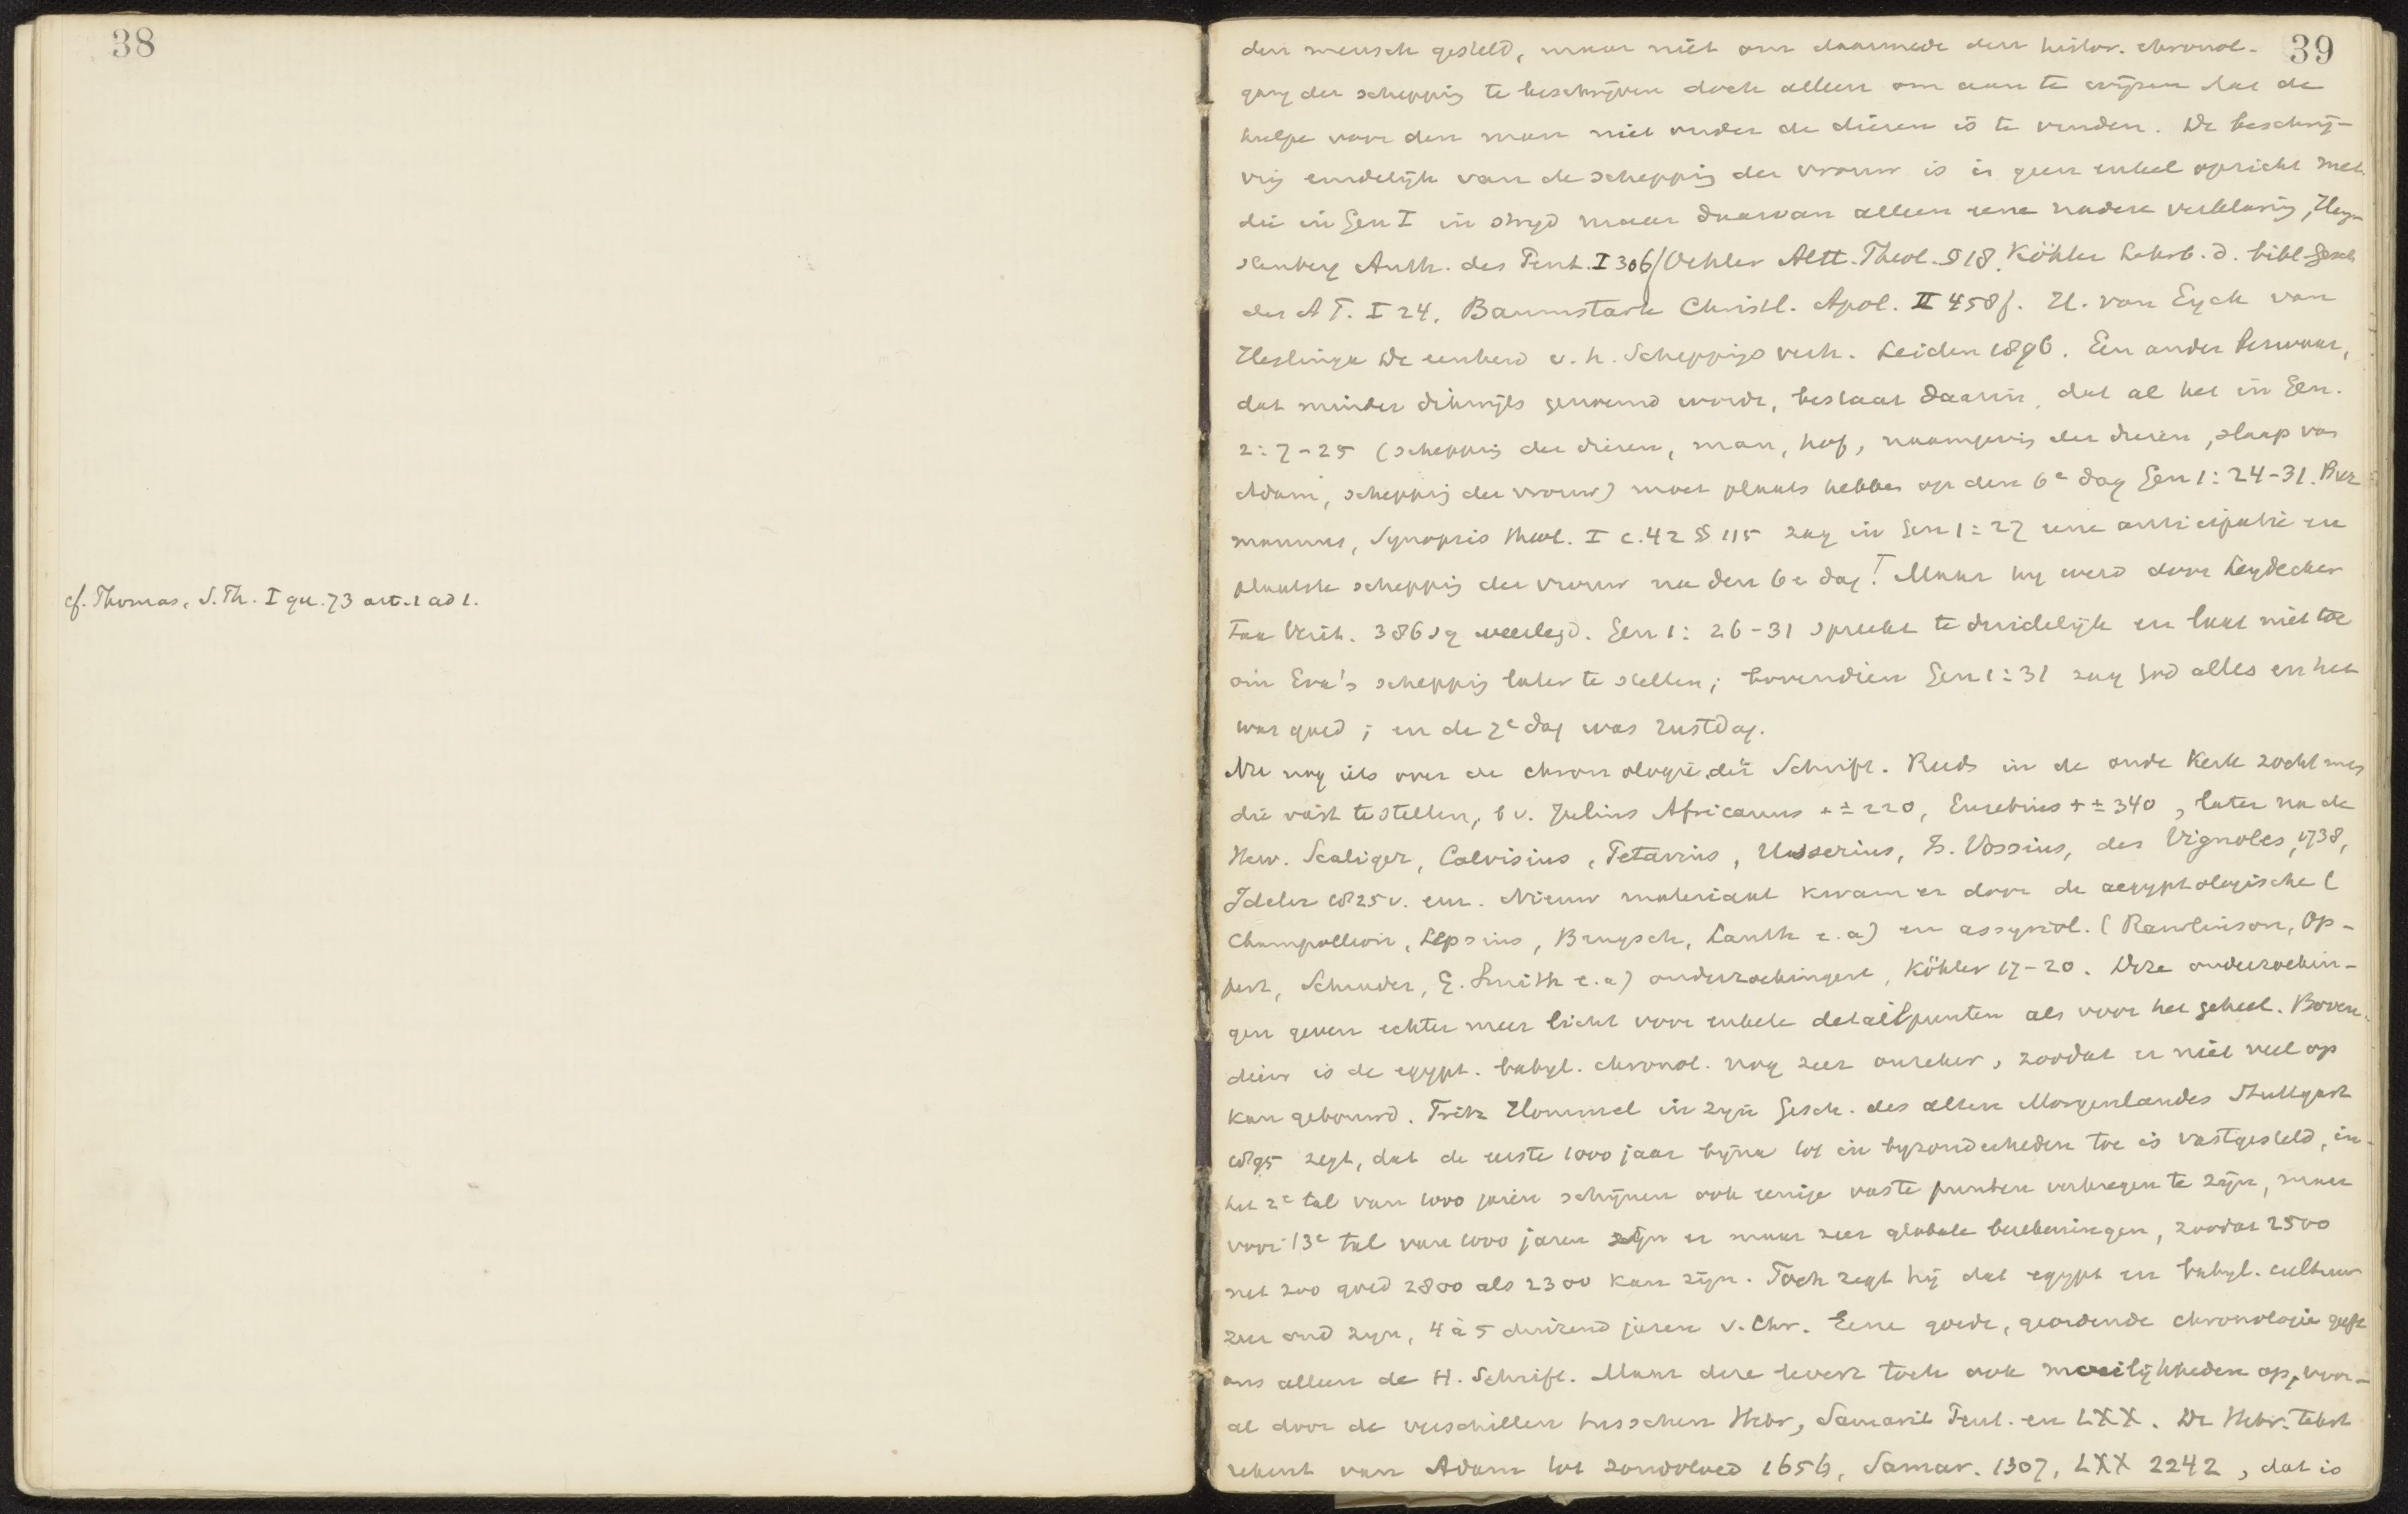 38
cf. Thomas, S. Th. I qu. 73 art. 1 ad 1.
39
den mensch gesteld, maar niet om daarmede den histor. chronol.
gang der schepping te beschrijven doch alleen om aan te wijzen dat de
hulpe voor den man niet onder de dieren is te vinden. De beschrij-
ving eindelijk van de schepping der vrouw is in geen enkel opzicht met
die in Gen I in strijd maar daarvan alleen eene nadere verklaring, Heng-
stenberg Auth. des Pent. I 306/ Oehler Altt. Theol. § 18. Köhler Lehrb. d. bibl. Gesch
des A T. I 24. Baumstark Christl. Apol. II 458 f. H. van Eyck van
Heslinga De eenheid v. h. Scheppings verh. Leiden 1896. Een ander bezwaar,
dat minder dikwijls genoemd wordt, bestaat daarin, dat al het in Gen.
2:7-25 (schepping der dieren, man, hof, naamgeving der dieren, slaap van
Adam, schepping der vrouw) moet plaats hebben op den 6e dag Gen 1: 24-31. Bur
mannus, Synopsis theol. I c. 42 § 115 zag in Gen 1:27 eene anticipatie en
plaatste schepping der vrouw na den 6e dag! Maar hij werd door Leydecker
Fax Verit. 386 sq weerlegd. Gen 1: 26-31 spreekt te duidelijk en laat niet toe
om Eva's schepping later te stellen; bovendien Gen 1:31 zag God alles en het
was goed; en de 7e dag was rustdag.
Nu nog iets over de chronologie der Schrift. Reeds in de oude Kerk zocht men
die vast te stellen, b v. Julius Africanus + ± 220, Eusebius + ± 340, later na de
Herv. Scaliger, Calvisius, Petavius, Usserius, Is. Vossius, des Vignoles, 1738,
Ideler 1825 v. enz. Nieuw materiaal kwam er door de aegyptologische (
Champollion, Lepsius, Brugsch, Lauth e. a) en assyriol. (Rawlinson, Op-
pert, Schrader, G. Smith e. a) onderzoekingen, Köhler 17-20. Deze onderzoekin-
gen geven echter meer licht voor enkele detailpunten als voor het geheel. Boven-
dien is de egypt. babyl. chronol. nog zeer onzeker, zoodat er niet veel op
kan gebouwd. Fritz Hommel in zijn Gesch. des alten Morgenlandes Stuttgart
1895 zegt, dat de eerste 1000 jaar bijna tot in byzonderheden toe is vastgesteld, in
het 2e tal van 1000 jaren schijnen ook eenige vaste punten verkregen te zijn, maar
voor 't 3e tal van 1000 jaren zijn er maar zeer globale berekeningen, zoodat 2500
net zoo goed 2800 als 2300 kan zijn. Toch zegt hij dat egypt en babyl. cultuur
zeer oud zijn, 4 à 5 duizend jaren v. Chr. Eene goede, geordende chronologie geeft
ons alleen de H. Schrift. Maar deze levert toch ook moeilijkheden op, voor-
al door de verschillen tusschen Hebr, Samarit Pent. en LXX. De Hebr. tekst
rekent van Adam tot zondvloed 1656, Samar. 1307, LXX 2242, dat is